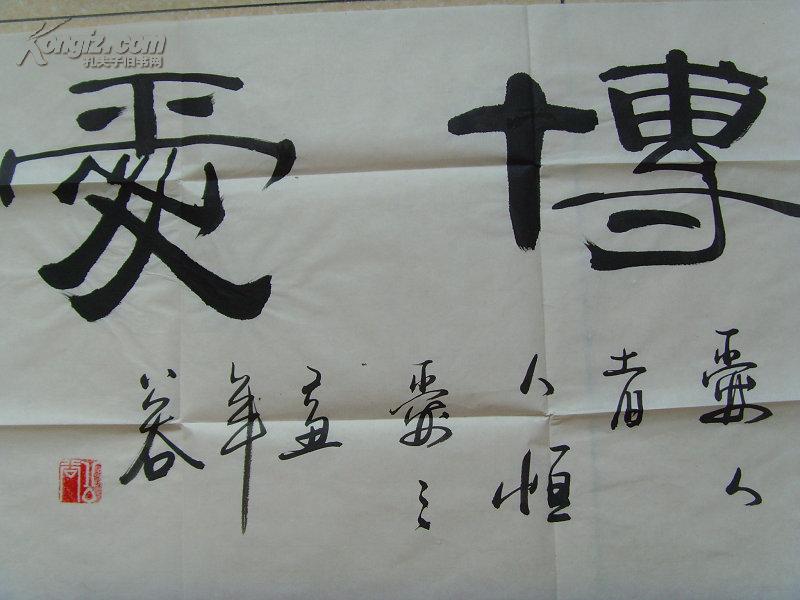 博愛
愛人
者
人恒
愛之
孟
年
谷
Kongfz.com
孔夫子旧书网